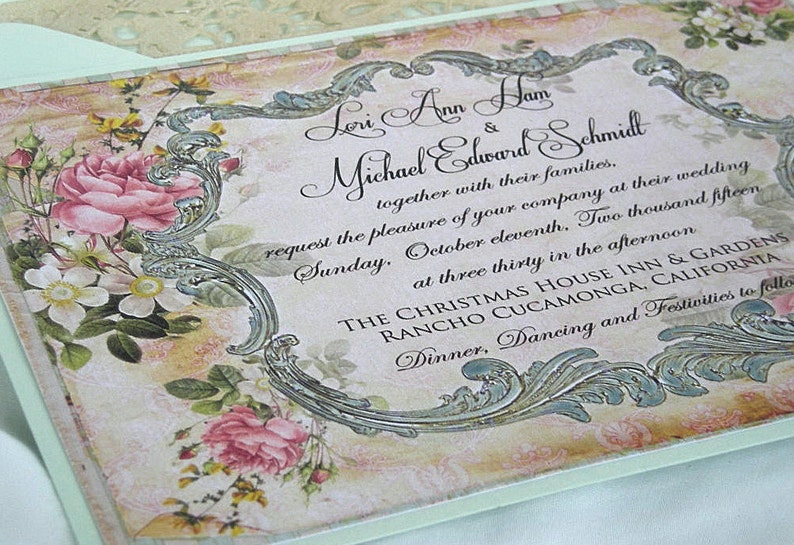 Lori Ann Ham
&
Michael Edward Schmidt
together with their families,
request the pleasure of your company at their wedding
Sunday, October eleventh, Two thousand fifteen
at three thirty in the afternoon
The Christmas House Inn & Gardens
Rancho Cucamonga, California
Dinner, Dancing and Festivities to follo